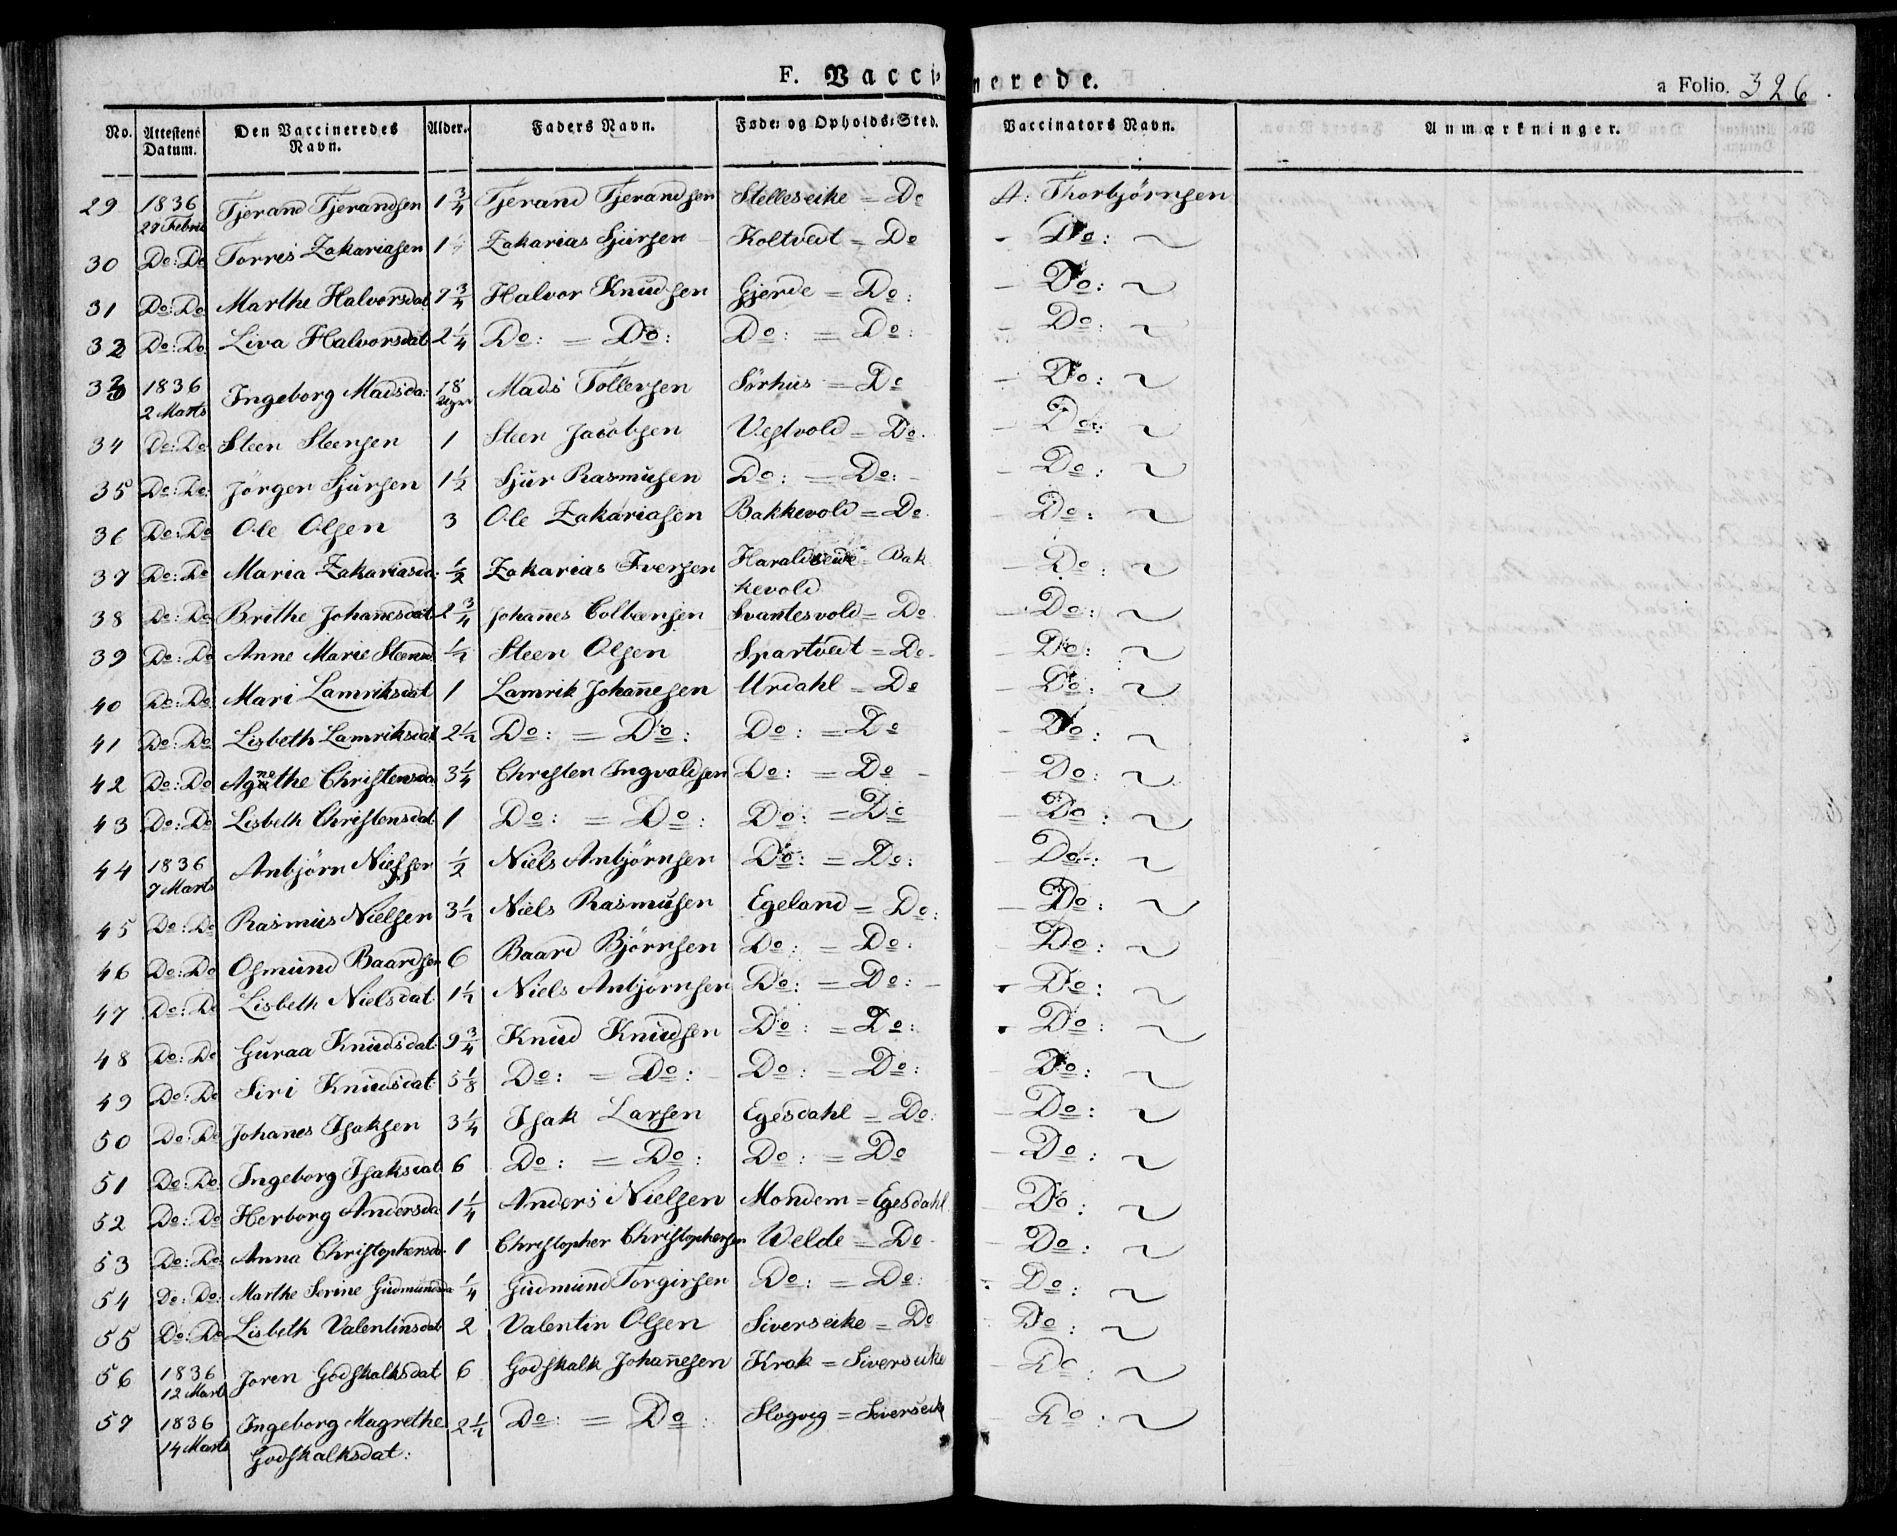 F. Vaccinerede.
a Folio. 326.
No. Attestens Datum. Den Vaccineredes Navn. Alder. Faders Navn. Føde- og Opholds-Sted. Vaccinators Navn. Anmærkninger.
29 1836 27 Febru Tjerand Tjerandsen 1 3/4 Tjerand Tjerandsen Stelleseike = Do A: Thorbjörnsen
30 Do: Do Torris Zakariasen 1 Zakarias Sjursen Koltvedt = Do - Do: ~
31 Do: Do Marthe Halvorsdat 7 3/4 Halvor Knudsen Gjerde = Do: - Do: ~
32 Do: Do Liva Halvorsdat 2 1/4 Do: = Do: Do: = Do: - Do: ~
33 1836 2 Marts Ingeborg Madsda: 18 Uger Mads Tollevsen Sörhus = Do - Do: ~
34 Do: Do Steen Steensen 1 Steen Jacobsen Vestvold = Do. - Do: ~
35 Do: Do: Jörgen Sjursen 1 1/2 Sjur Rasmusen Do: = Do: - - Do: ~
36 Do: Do Ole Olsen 3 Ole Zakariasen Bakkevold = Do. - Do: ~
37 Do: Do Maria Zakariasda: 1/2 Zakarias Iversen Haraldseike = Bak
kevold - Do: ~
38 Do: Do Brithe Johan̄esdat 2 3/4 Johan̄es Colbensen Svantesvold = Do - Do: ~
39 Do: Do Anne Marie Steensd 1/2 Steen Olsen Spartvedt = Do - - Do: ~
40 Do: Do Mari Lamriksdat 1 Lamrik Johan̄esen Urdahl = Do - Do: ~
41 Do: Do Lisbeth Lamriksdat 2 1/2 Do: = Do: Do: = Do - Do: ~
42 Do: Do Agnethe Christensda 3 1/4 Christen Ingvaldsen Do: = Do - - Do: ~
43 Do: Do Lisbeth Christensdat 1 Do: = Do: Do: = Do - Do: ~
44 1836 7 Marts Anbjörn Nielsen 1/2 Niels Anbjörnsen Do: = Do: - Do: ~
45 Do: Do Rasmus Nielsen 3 1/2 Niels Rasmusen Egeland = Do: - Do: ~
46 Do: Do Osmund Baardsen 6 Baard Björnsen Do: = Do: - Do: ~
47 Do: Do Lisbeth Nielsdat 1 1/2 Niels Anbjörnsen Do: = Do: - - Do: ~
48 Do: Do Guraa Knudsdat: 9 3/4 Knud Knudsen Do: = Do: - Do: ~
49 Do: Do Siri Knudsdat: 5 1/8 Do: = Do: - Do: = Do: - Do: ~
50 Do: Do Johan̄es Isaksen 3 1/4 Isak Larsen Egesdahl = Do: - Do: ~
51 Do: Do Ingeborg Isaksdat 6 Do: = Do: Do: = Do - Do: ~
52 Do: Do Herborg Andersda 1 1/4 Anders Nielsen Mondem = Egesdahl - Do: ~
53 Do: Do Anna Christophersda 1 Christopher Christophersen Welde = Do - - Do: ~
54 Do: Do: Marthe Serine Gudmundsda 1/4 Gudmund Torgirsen Do: = Do: - Do: ~
55 Do: Do Lisbeth Valentinsdat 2 Valentin Olsen Siverseike = Do Do: ~
56 1836 12 Marts Joren Godskalksdat 6 Godskalk Johan̄esen Krak = Siverseike - Do: ~
57 1836 14 Marts Ingeborg Magrethe 2 1/2 Do: = Do: Slogvig = Siverseik Do: ~
Godskalksdat: